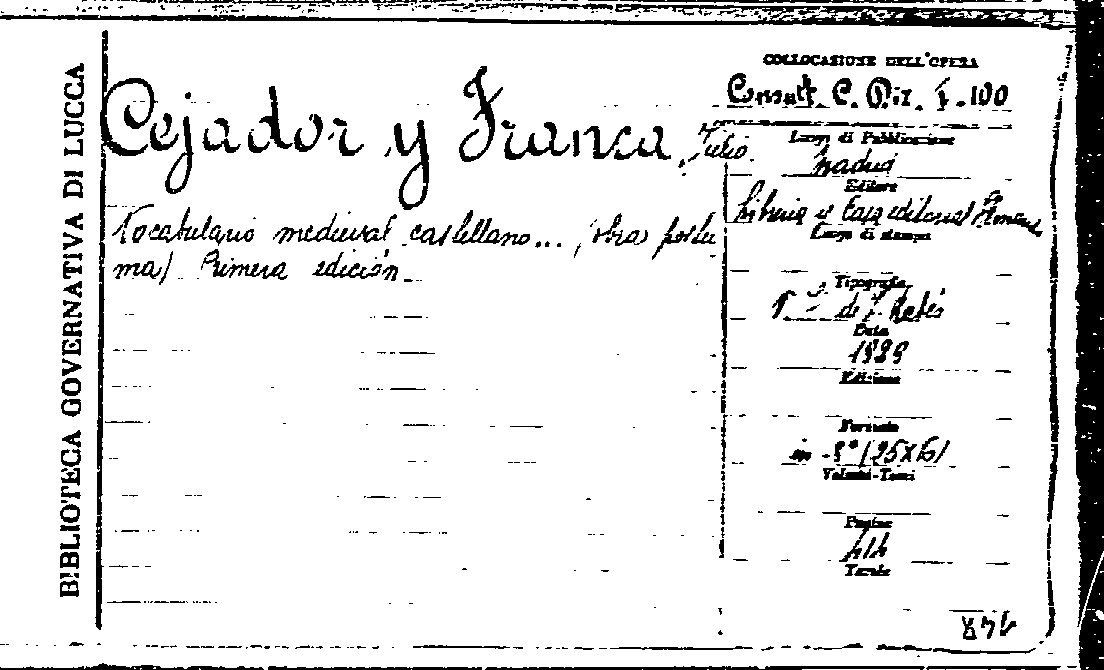 BIBLIOTECA GOVERNATIVA DI LUCCA
Cejador y Franca, Julio.
Vocabulario medieval castellano... (obra postu
ma) Primera edición.
COLLOCAZIONE DELL'OPERA
Consult. C. Diz. F. 100
Luogo di Pubblicazione
Madrid
Editore
Libreria e Casa editorial
Luogo di stampa
Tipografia
de J. Ratés
Data
1929
Edizione
Formato
in-8° (25X16)
Volumi-Tomi
Pagine
414
Tavole